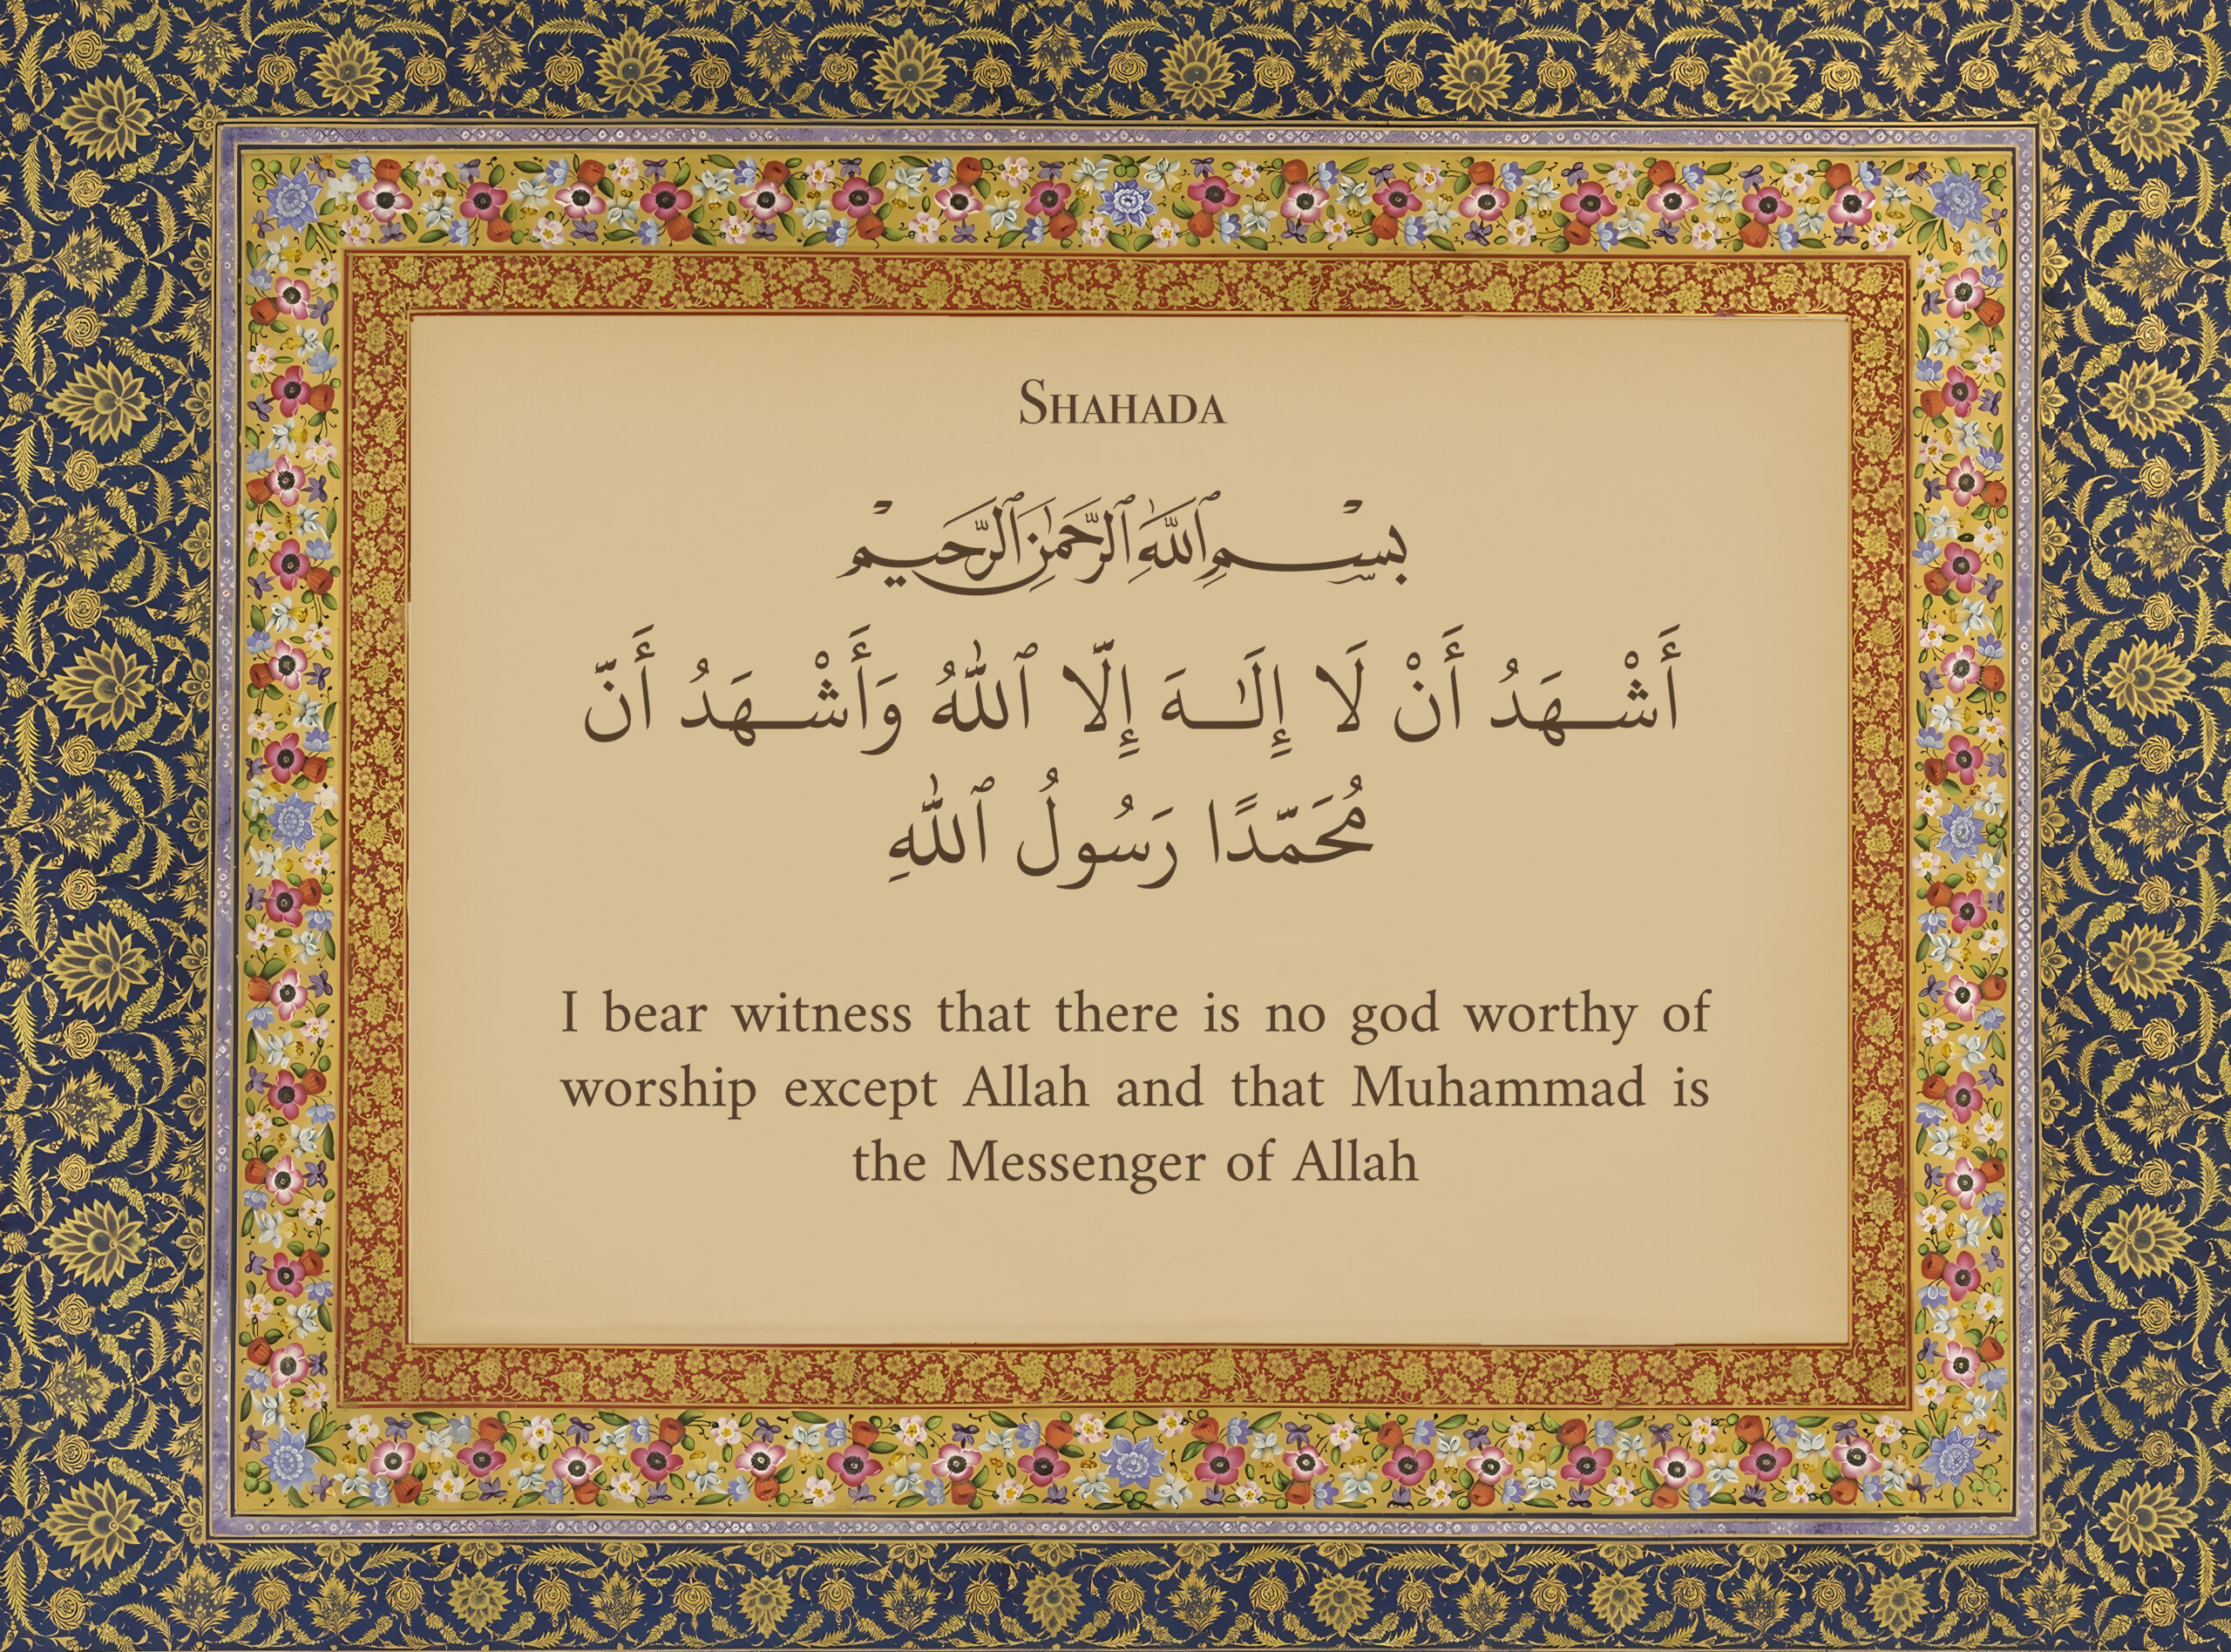 Shahada
بِسْمِ ٱللَّهِ ٱلرَّحْمَٰنِ ٱلرَّحِيمْ
أَشْـهَدُ أَنْ لَا إِلَٰـهَ إِلَّا ٱللَّٰهُ وَأَشْـهَدُ أَنَّ
مُحَمَّدًا رَسُولُ ٱللَّٰهِ
I bear witness that there is no god worthy of
worship except Allah and that Muhammad is
the Messenger of Allah